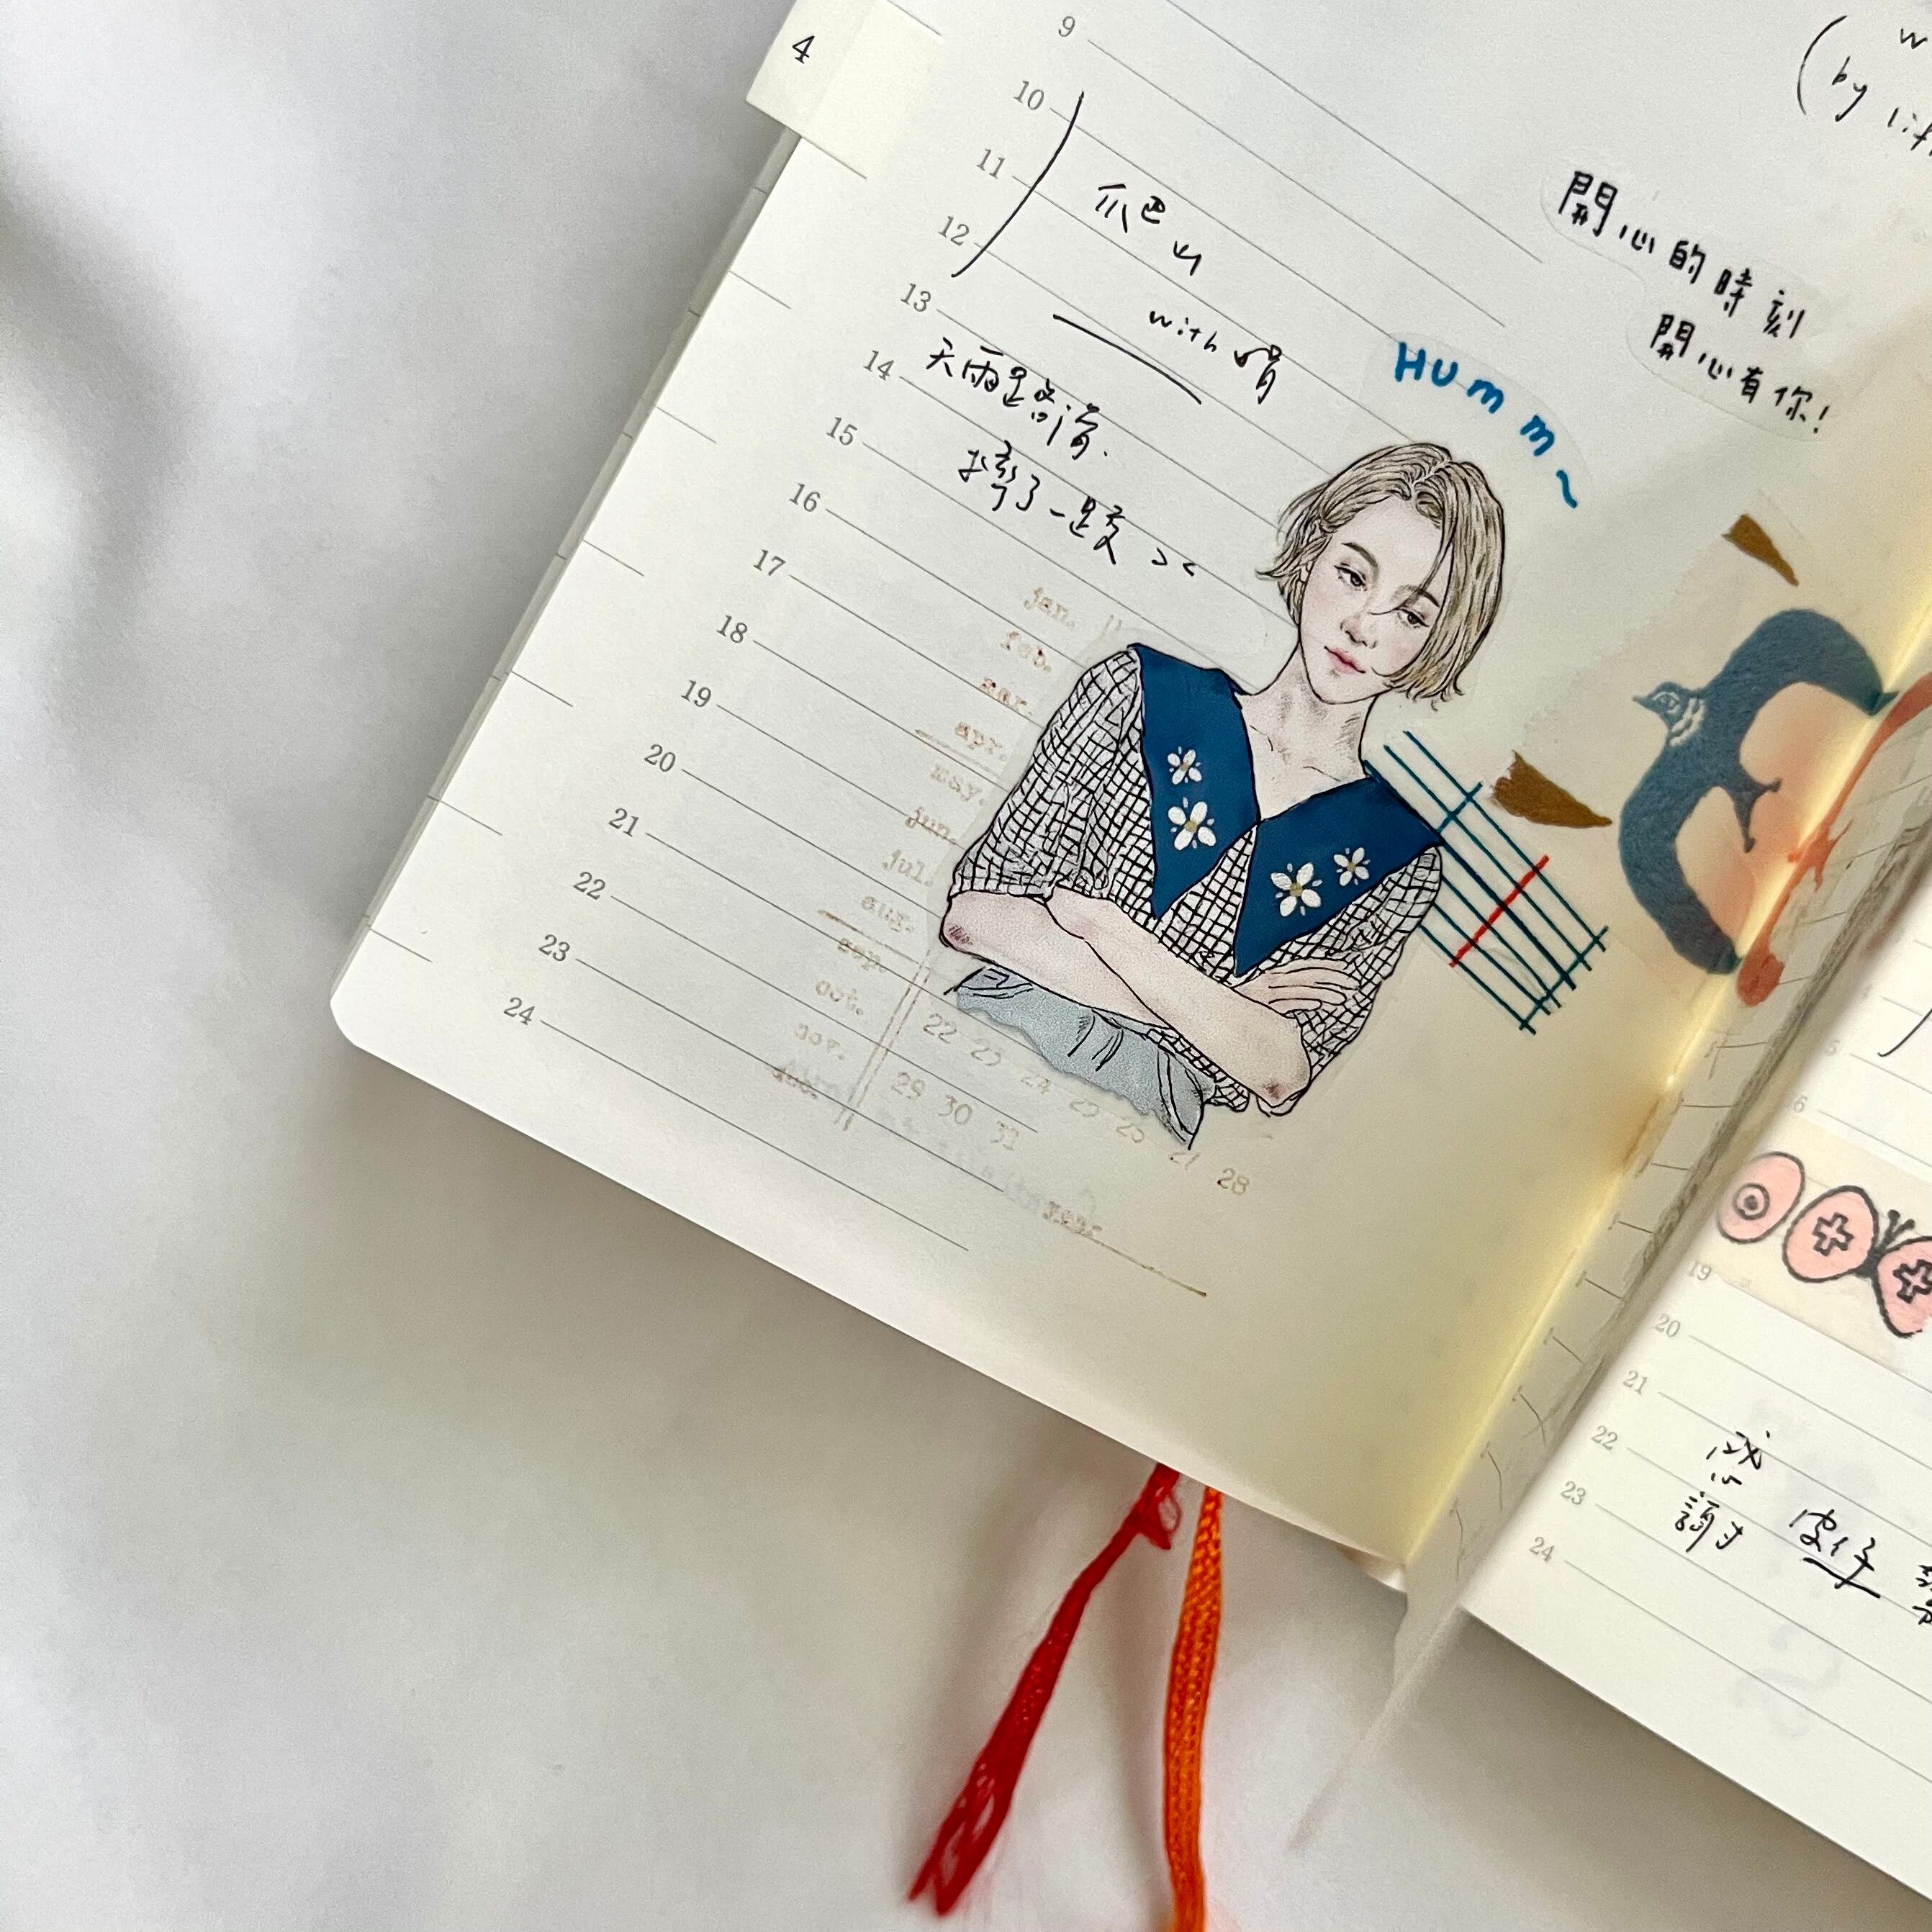 4
9
10
11
12
13
14
15
16
17
18
19
20
21
22
23
24
爬山
with 婧
天雨路滑.
摔了一跤 ><
(
by lif
開心的時刻
開心有你!
Humm~
jan.
feb.
mar.
apr.
may.
jun.
jul.
aug.
sep.
oct.
nov.
22 23 24 25 26 27 28
29 30 31
19
20
21
22
23
24
感
謝 皮仔